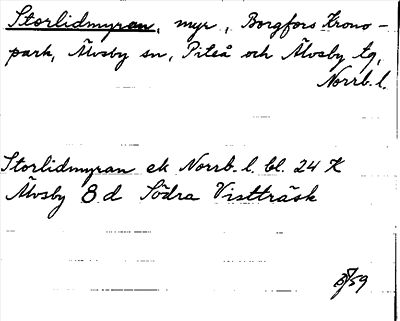 Storlidmyran, myr, Borgfors Krono-
park, Älvsby sn, Piteå och Älvsby tg,
Norrb. l.
Storlidmyran ek Norrb. l. bl. 24 K
Älvsby 8 d Södra Vistträsk